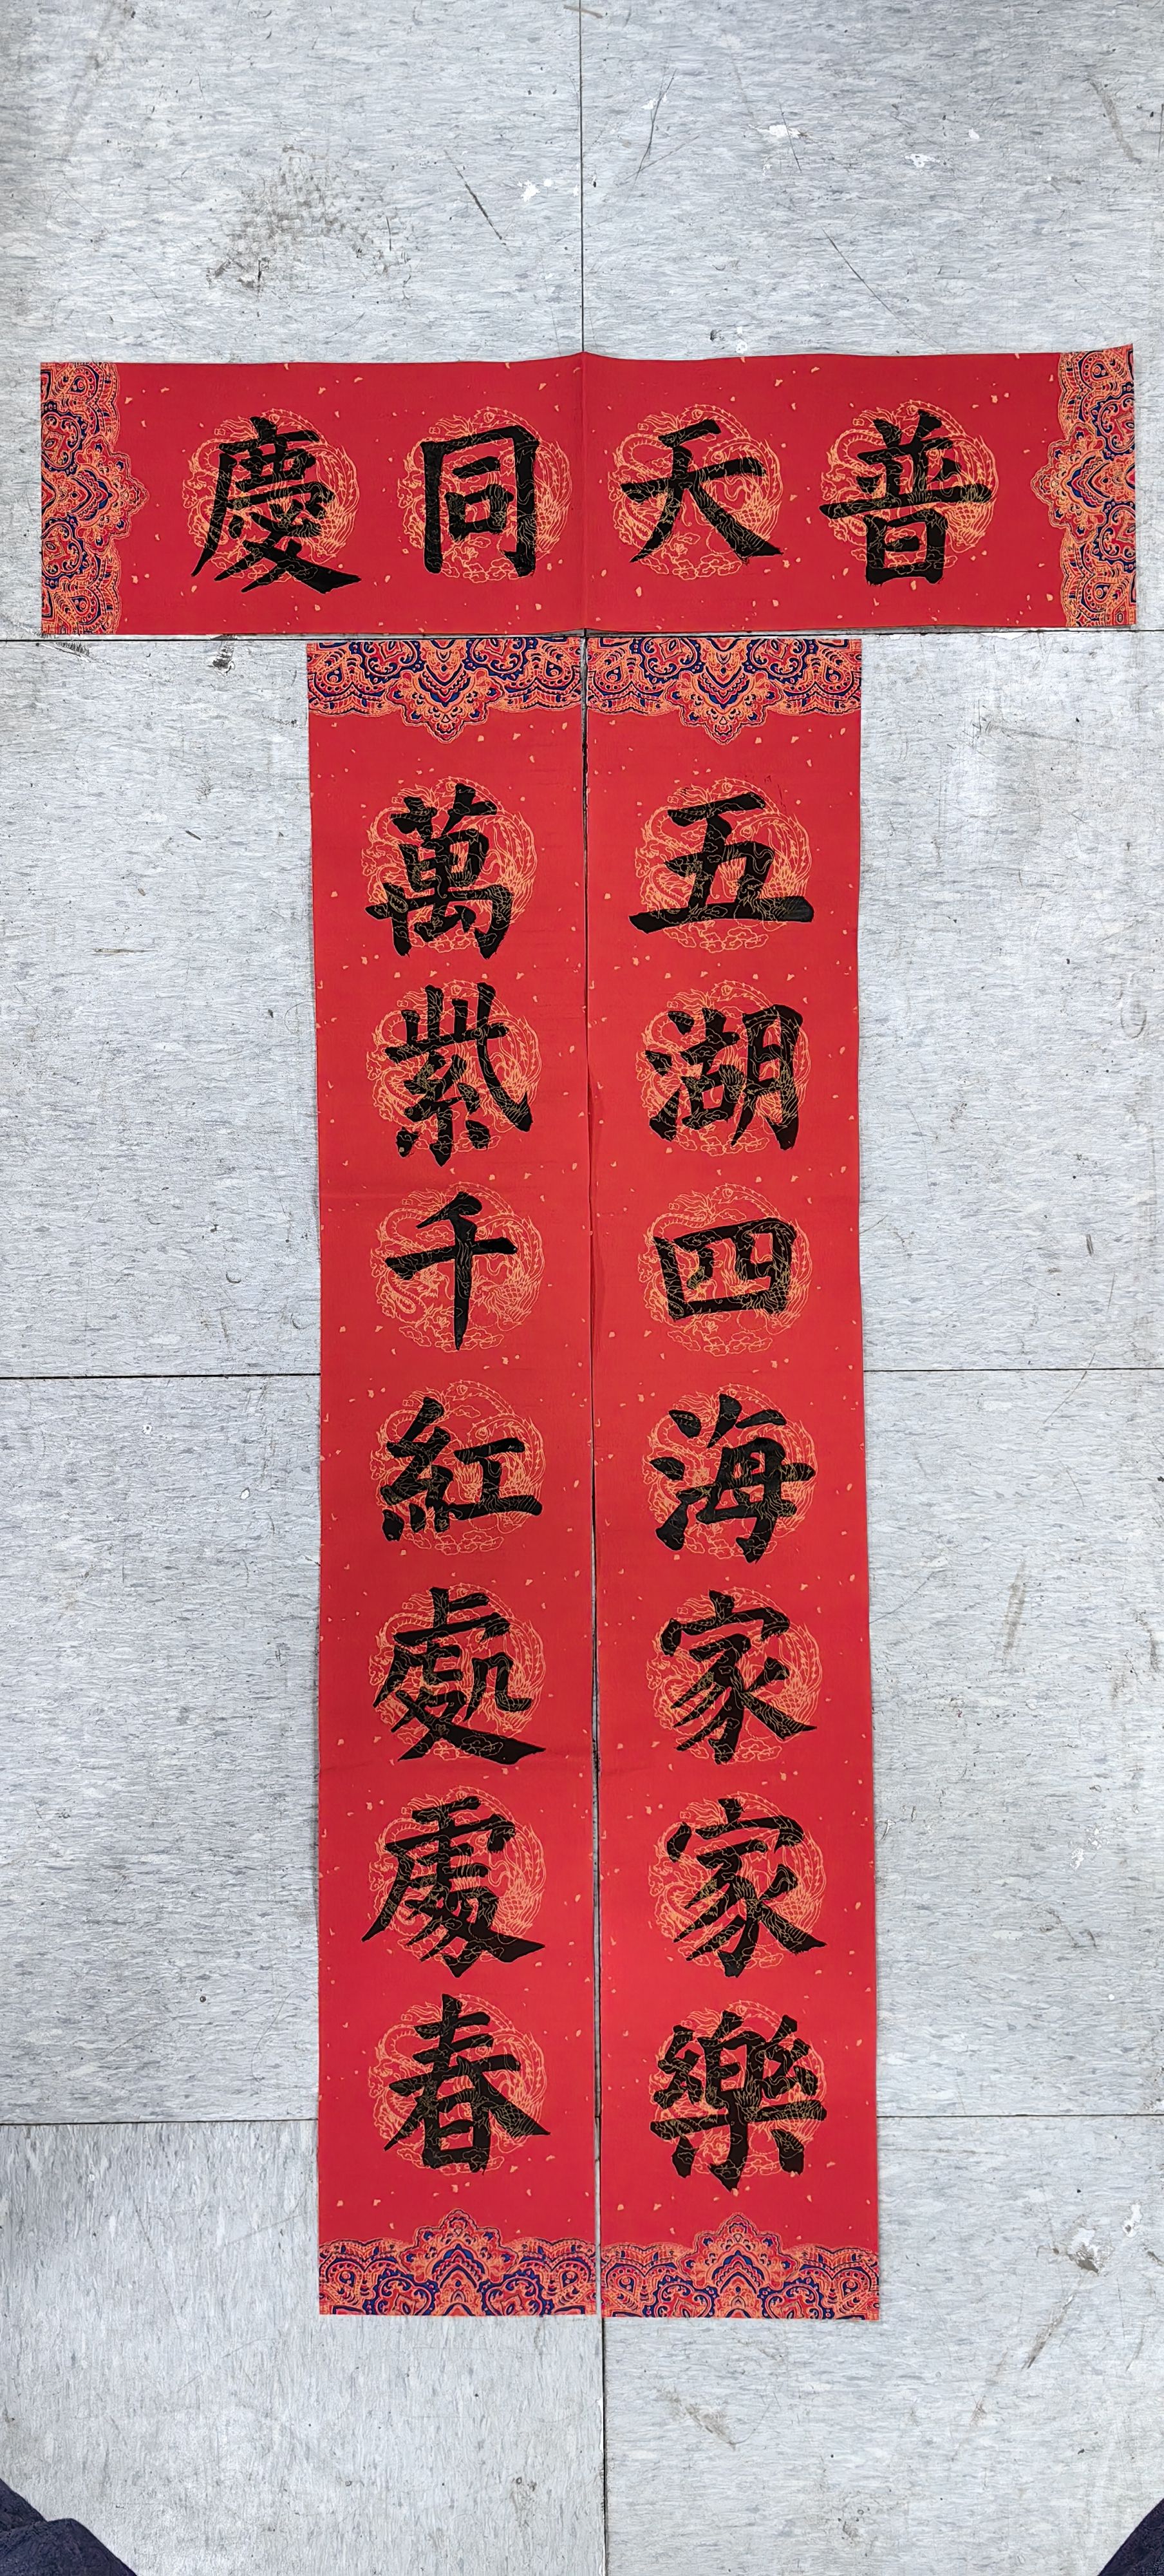 普天同慶
五湖四海家家樂
萬紫千紅處處春